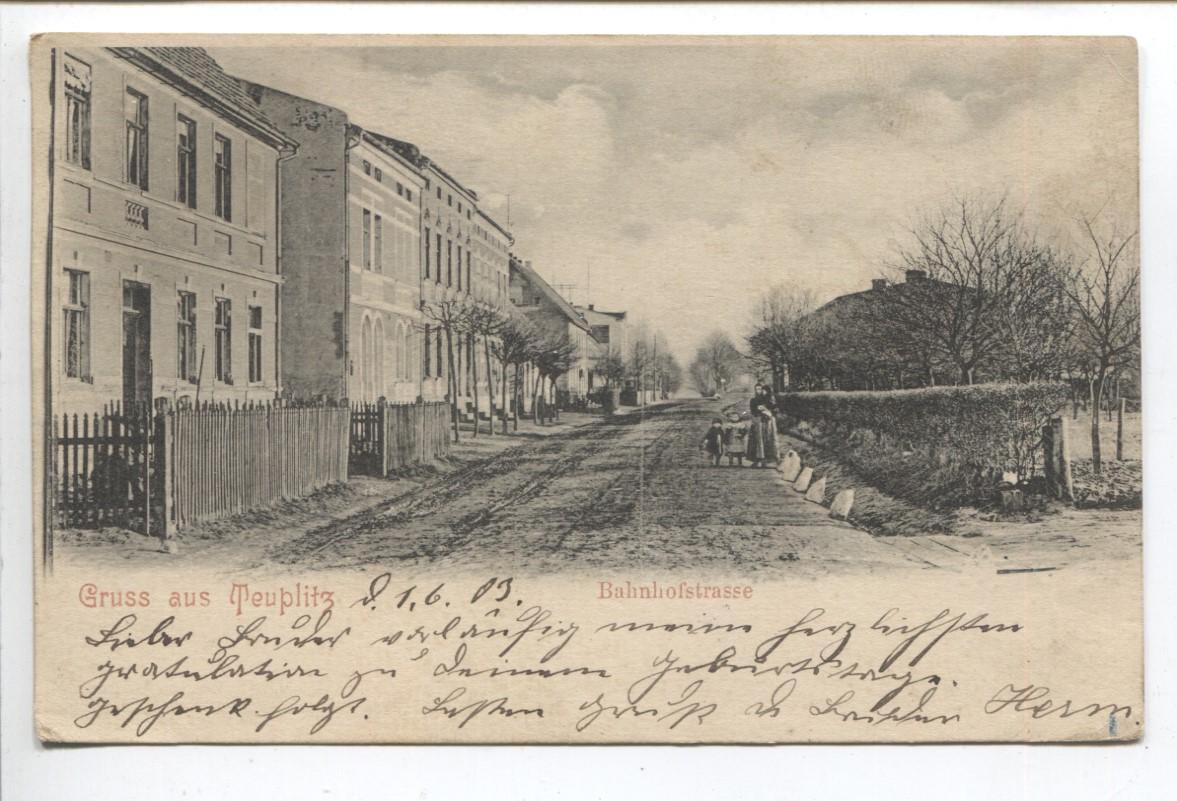 Gruss aus Teuplitz d. 1.6.03. Bahnhofstrasse
Lieber Bruder vorläufig meine herzlichsten
gratulation zu Deinem Geburtstage.
geschenk folgt. Besten Gruß Herm.